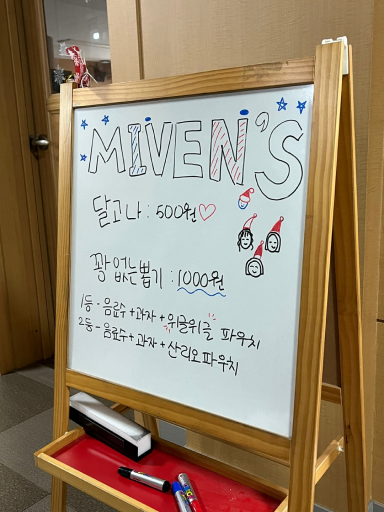 MIVEN'S
달고나 : 500원♡
꽝 없는 뽑기 : 1000원
1등 - 음료수 + 과자 + 위글위글 파우치
2등 - 음료수 + 과자 + 산리오 파우치